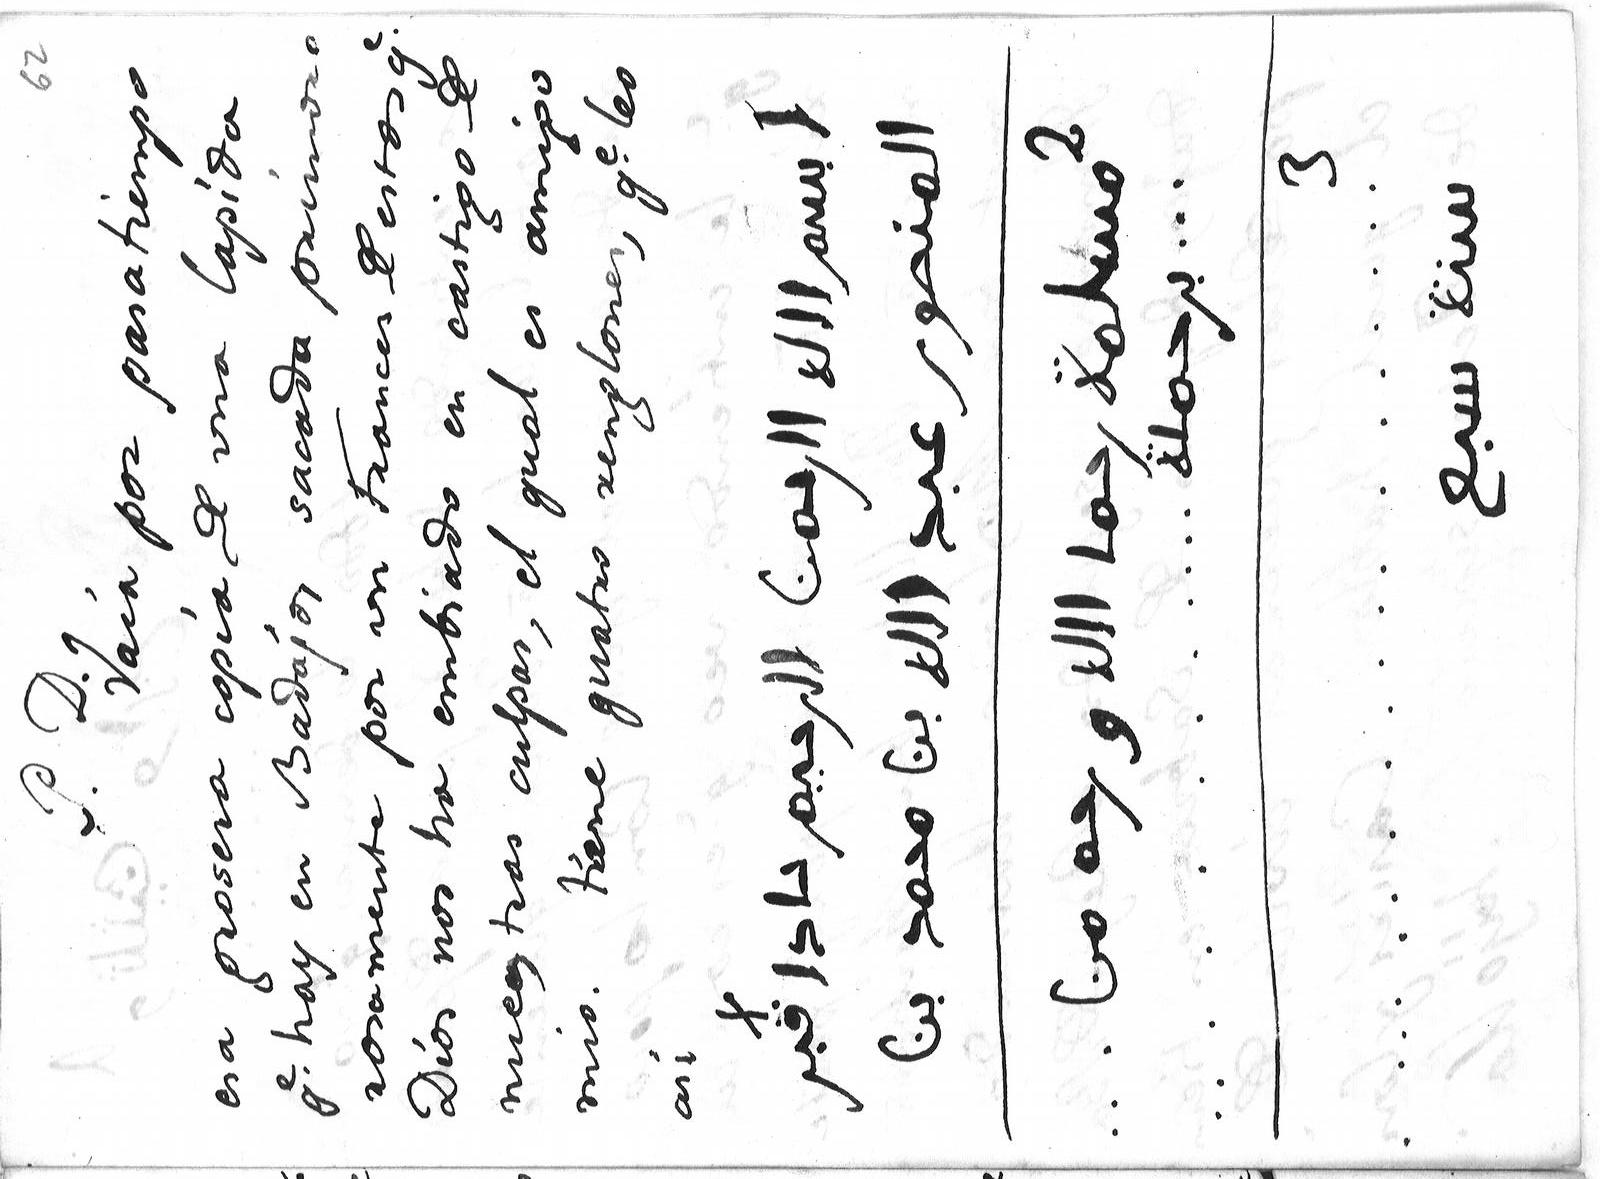 62
P. D.
Vaia por pasatiempo
esa grosera copia de una lapida
q.e hay en Badajoz sacada primo-
rosamente por un Frances de estos q.e
Dios nos ha embiado en castigo de
nuestras culpas, el qual es amigo
mio. tiene quatro renglones, q.e leo
asi
1 بسم الله الرحمن الرحيم هاذا قبر
المنصور عبد الله بن محمد بن
2 مسلمة رحما الله ورحم من
برحمة
3
سنة سبع